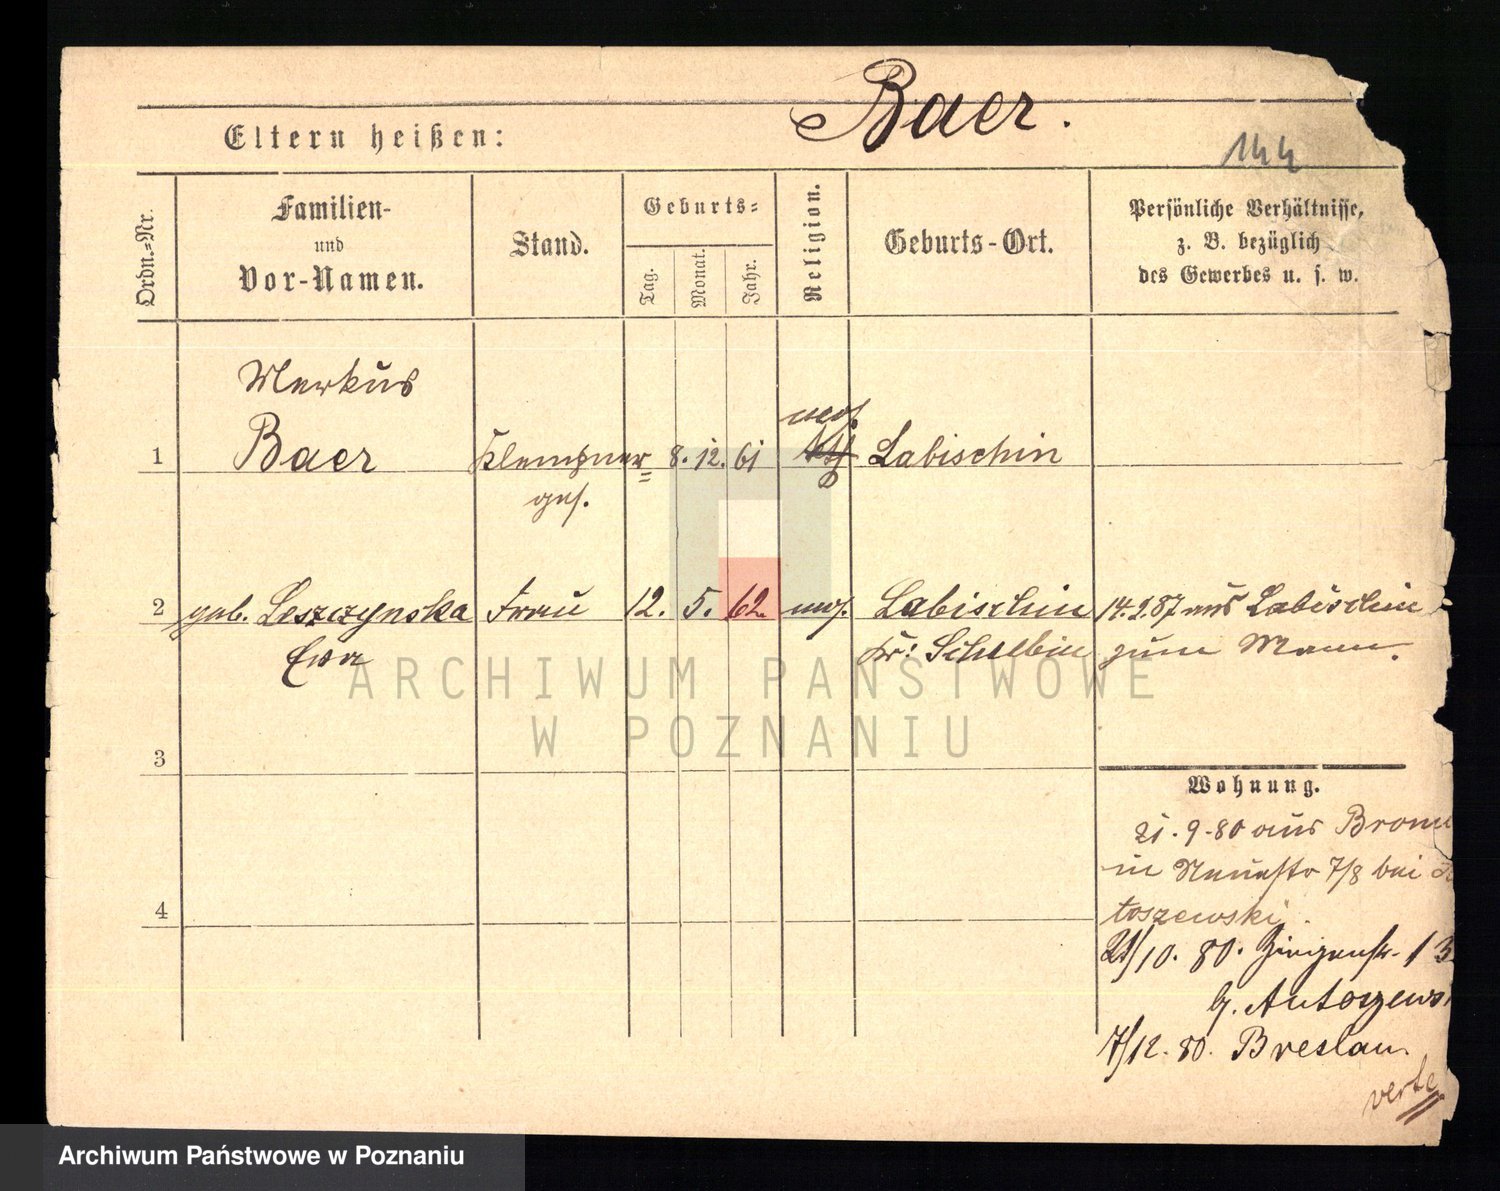 Baer.
Eltern heißen:
144
Ordn.=Nr.
Familien-
und
Vor-Namen.
Stand.
Geburts=
Tag.
Monat.
Jahr.
Religion.
Geburts-Ort.
Persönliche Verhältnisse,
z. B. bezüglich
des Gewerbes u. s. w.
Markus
mos.
1 Baer Klempner 8. 12. 61 Labischin
ges.
2 geb. Leszczynska Frau 12. 5. 62 mos. Labischin 14.2.87 aus Labischin
Ewa Kr: Schubin zum Mann.
ARCHIWUM PAŃSTWOWE
W POZNANIU
3
Wohnung.
21.9.80 aus Brom
in Neuestr 7/8 bei
toszewski.
4
21/10. 80. Ziegenstr. 13
b. Antoszews
7/12. 80. Breslau.
verte
Archiwum Państwowe w Poznaniu